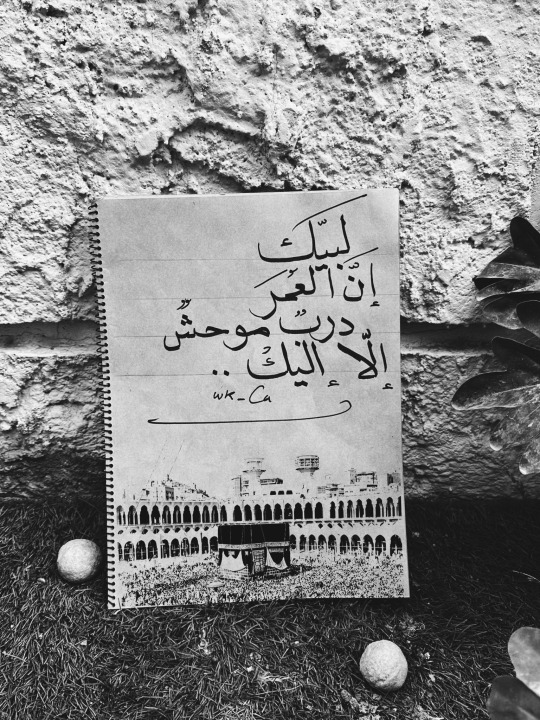 لبيّك
إنّ العُمرَ
دربٌ موحشٌ
إلّا إليكَ ..
wk_Ca